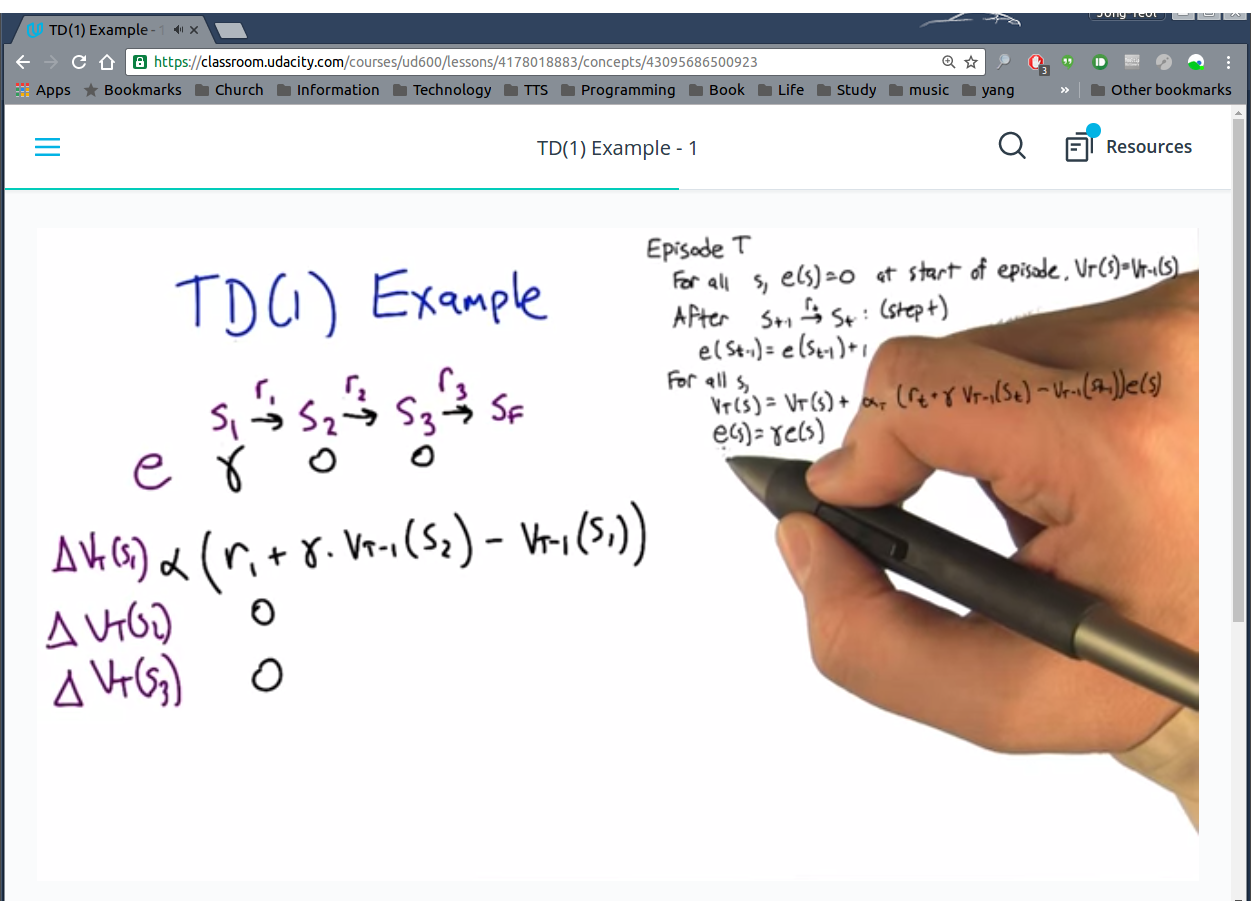 TD(1) Example - 1
https://classroom.udacity.com/courses/ud600/lessons/4178018883/concepts/43095686500923
3
Apps Bookmarks Church Information Technology TTS Programming Book Life Study music yang » Other bookmarks
TD(1) Example - 1
Resources
TD(1) Example
s₁ →r₁ s₂ →r₂ s₃ →r₃ sF
e γ 0 0
ΔVT(s₁) α(r₁ + γ · VT-1(s₂) - VT-1(s₁))
ΔVT(s₂) 0
ΔVT(s₃) 0
Episode T
For all s, e(s)=0 at start of episode, VT(s)=VT-1(s)
After St-1 →rt St : (step t)
e(St-1) = e(St-1)+1
For all s,
VT(s) = VT(s) + αT (rt + γ VT-1(St) - VT-1(St-1))e(s)
e(s) = γe(s)